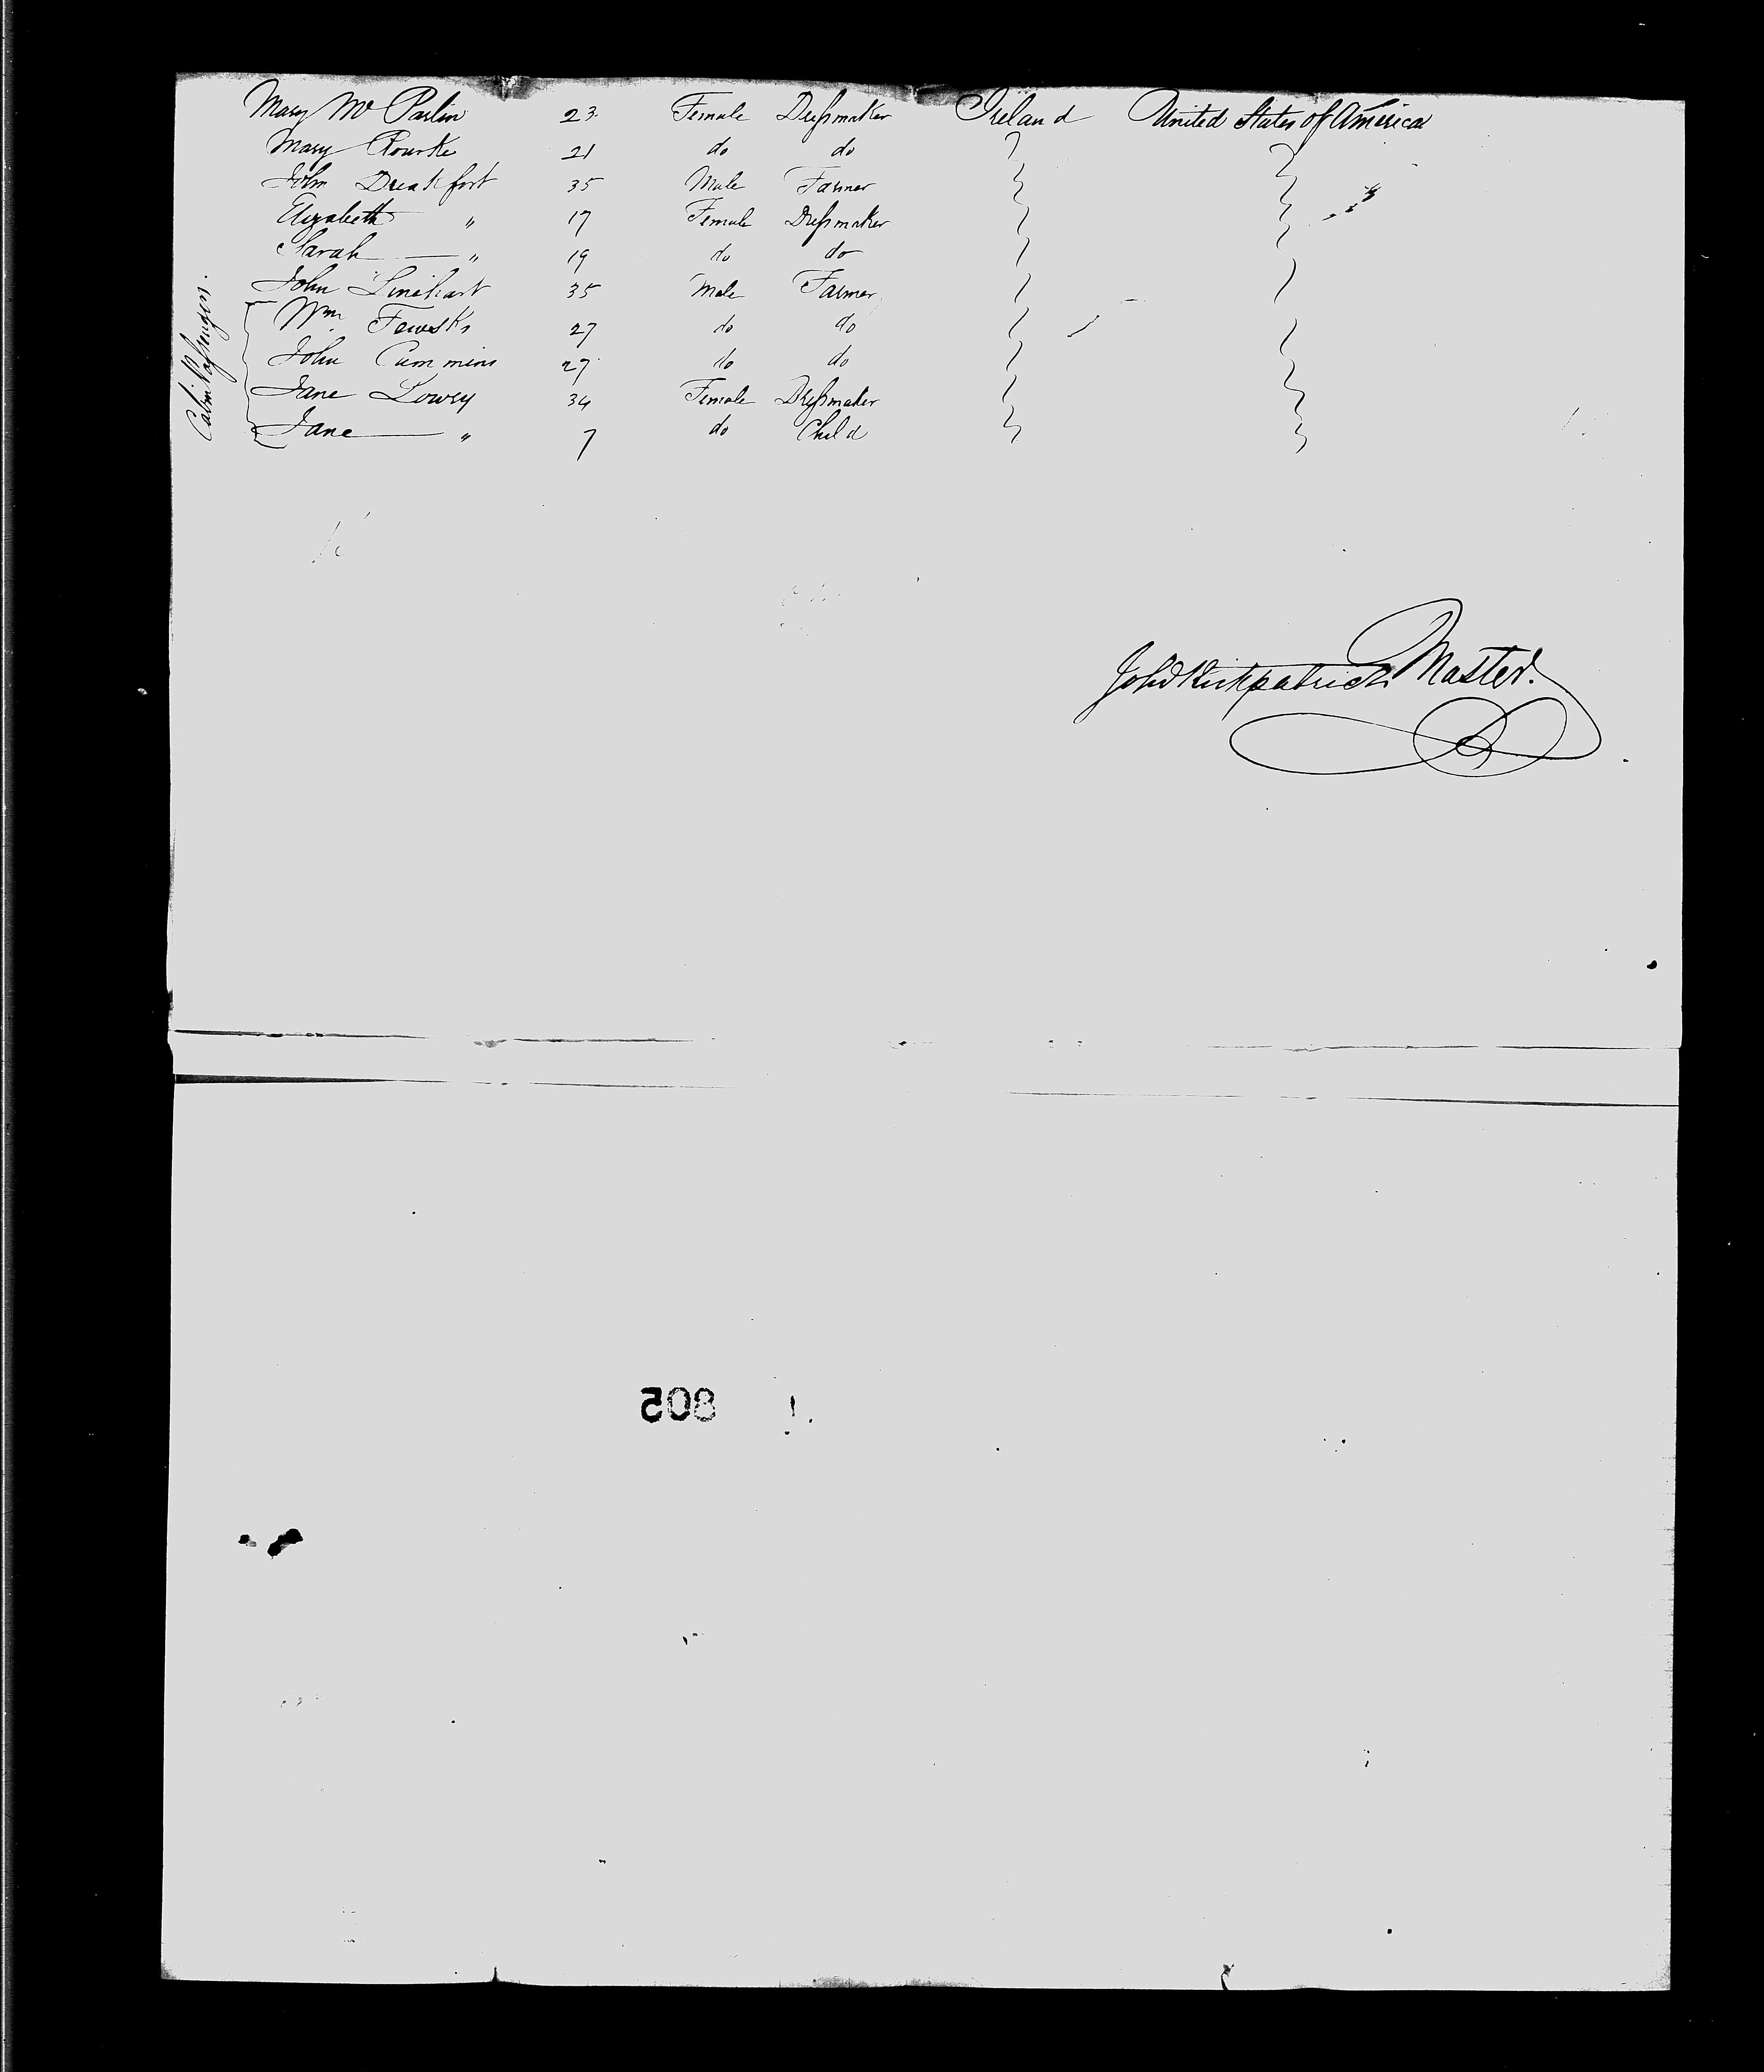 Mary Mc Parlin 23 Female Dressmaker Ireland United States of America
Mary Rourke 21 do do
John Breakfort 35 Male Farmer
Elizabeth " 17 Female Dressmaker
Sarah " 19 do do
John Linehart 35 Male Farmer
Wm. 27 do do
John Cummins 27 do do
Jane Lowry 34 Female Dressmaker
Jane " 7 do Child
Cabin Passengers.
John Kirkpatrick Master.
805